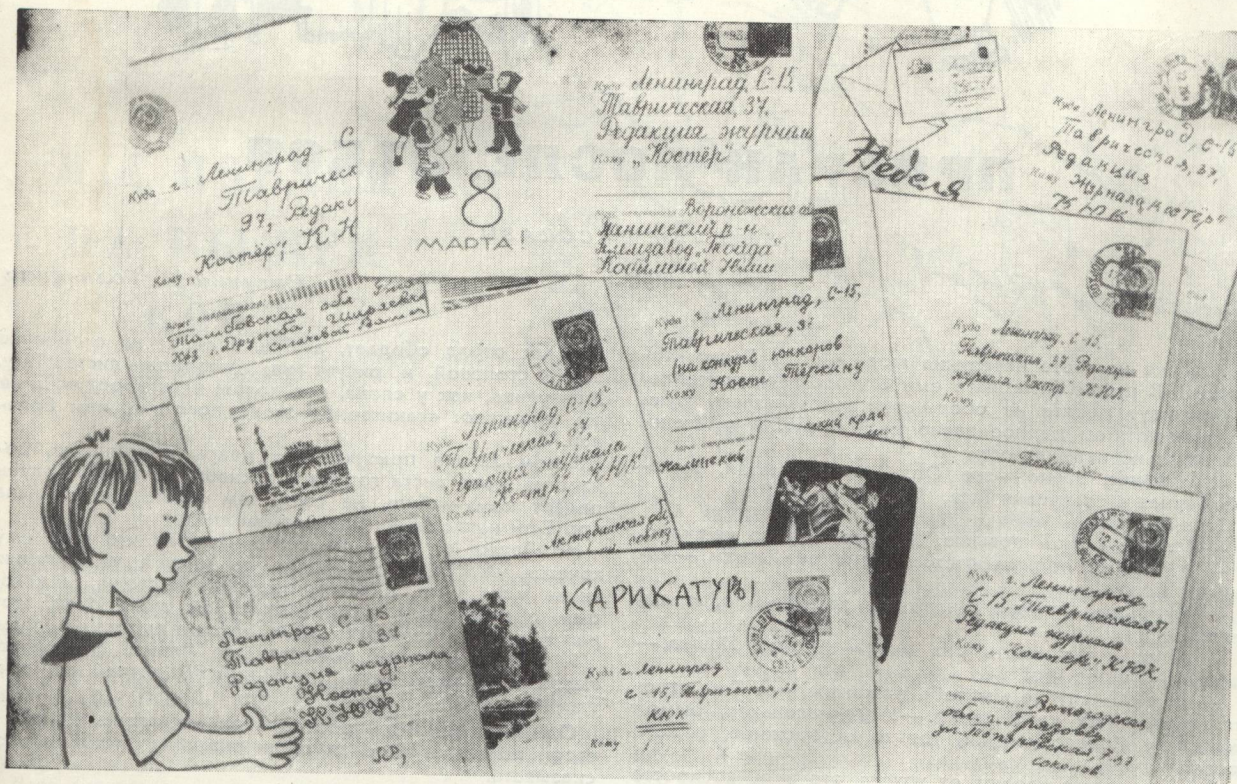 Куда г. Ленинград С
Таврическ
37, Редакц
Кому „Костёр", К Ю
Тамбовская обл.
к/з „Дружба" Ширяевка
8
МАРТА!
Куда Ленинград С-15
Таврическая, 37.
Редакция журнала
Кому „Костёр"
Воронежская о
Панинский р-н
Племзавод „Тойда"
Юлии
Неделя
Куда Ленинград, С-15
Таврическая, 37,
Редакция
Кому Журнала „Костёр"
К Ю К
Куда г. Ленинград, С-15,
Таврическая, 37
(на конкурс юнкоров
Кому Косте Тёркину
край
Куда Ленинград, С-15.
Таврическая, 37 Редакция
журнала „Костёр" КЮК
Кому
Куда Ленинград, С-15,
Таврическая, 37,
Редакция журнала
Кому „Костёр", КЮК
Актюбинская
Ленинград, С-15
Таврическая 37
Редакция журнала
"Костёр"
"КЮК"
КАРИКАТУРЫ
Куда г. Ленинград
С-15, Таврическая, 37
КЮК
Кому
Куда г. Ленинград
С-15, Таврическая 37
Редакция журнала
Кому „Костёр" КЮК
Вологодская
обл. г. Грязовец
ул.
Соколов